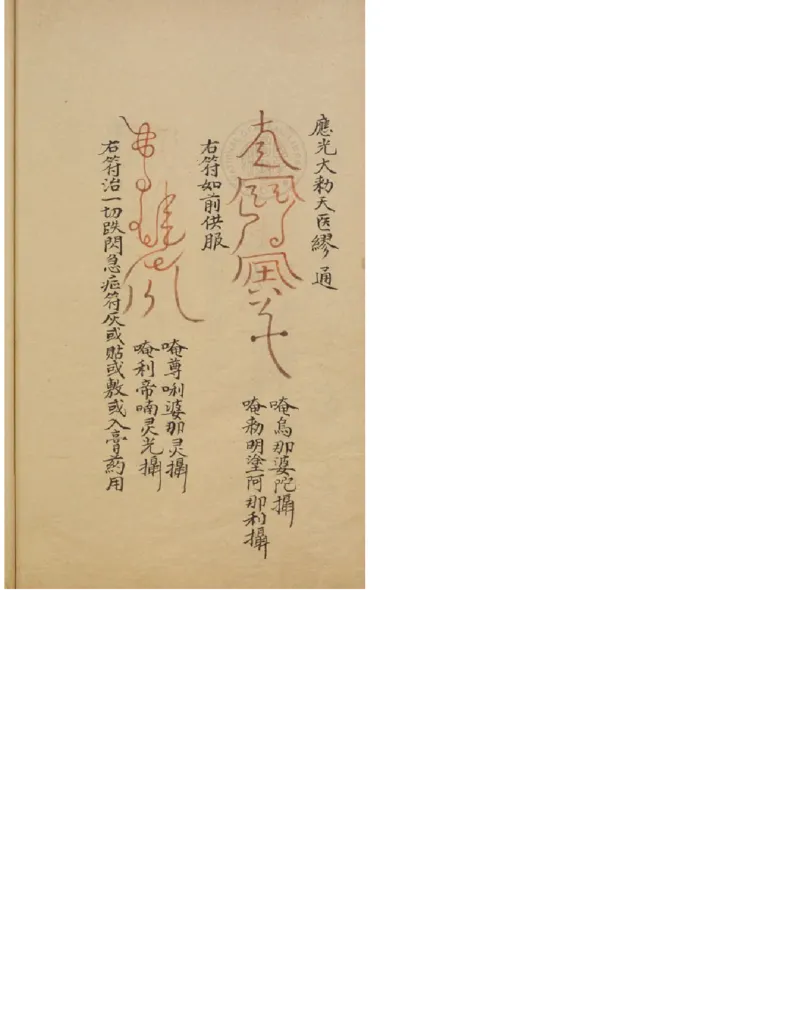 應光大勅天医繆 通
唵烏那婆陀攝
唵勅明塗阿那利攝
右符如前供服
唵尊唎婆那灵攝
唵利帝喃灵光攝
右符治一切跌閃急症符灰或貼或敷或入膏药用